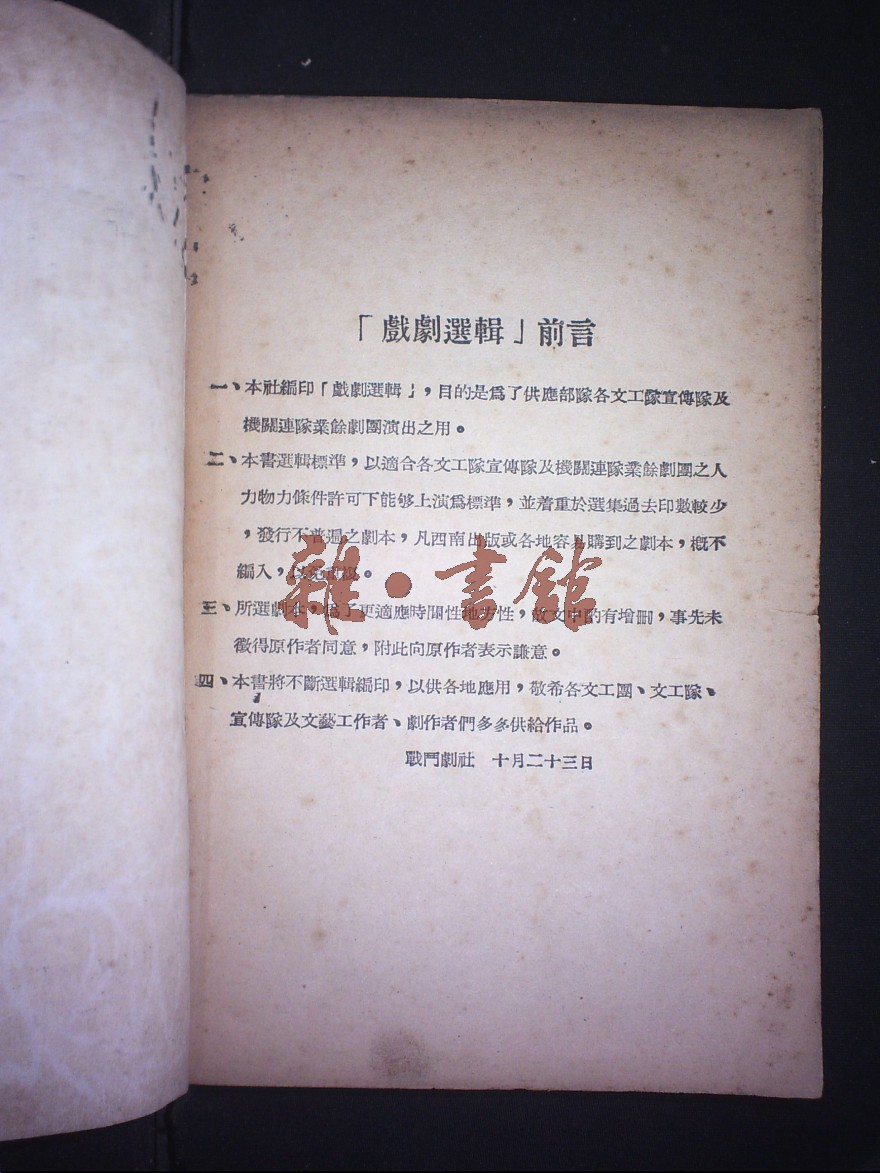 「戲劇選輯」前言
一、本社編印「戲劇選輯」，目的是爲了供應部隊各文工隊宣傳隊及
機關連隊業餘劇團演出之用。
二、本書選輯標準，以適合各文工隊宣傳隊及機關連隊業餘劇團之人
力物力條件許可下能够上演爲標準，並着重於選集過去印數較少
，發行不普遍之劇本，凡西南出版或各地容易購到之劇本，概不
編入，以免。
三、所選劇本，爲了更適應時間性地方性，散文中酌有增刪，事先未
徵得原作者同意，附此向原作者表示謙意。
四、本書將不斷選輯編印，以供各地應用，敬希各文工團、文工隊、
宣傳隊及文藝工作者、劇作者們多多供給作品。
戰鬥劇社 十月二十三日
雜·書館